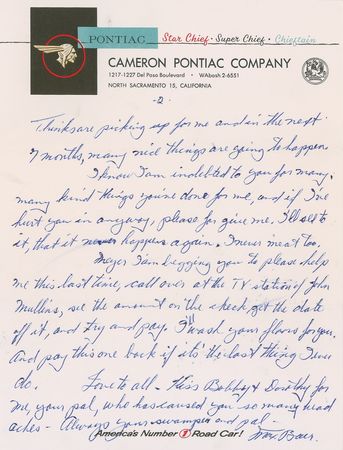 PONTIAC Star Chief • Super Chief • Chieftain
CAMERON PONTIAC COMPANY
1217-1227 Del Paso Boulevard • WAbash 2-6551
NORTH SACRAMENTO 15, CALIFORNIA
-2-
Thinks are picking up for me and in the next
7 months, many nice things are going to happen.
I know I am indebted to you for many,
many kind things you've done for me, and if I've
hurt you in anyway, please for give me. I'll see to
it, that it never happens again. I never meat too.
Meyer I am begging you to please help
me this last time, call over at the TV station of John
Mullins, see the amount on the check, get the date
off it, and try and pay. I'll wash your floors for you.
And pay this one back if it's the last thing I ever
do. Love to all - Kiss Bobby & Dorothy for
me, your pal, who has caused you so many head
aches - Always your swamper and pal -
Max Baer.
America's Number 1 Road Car!